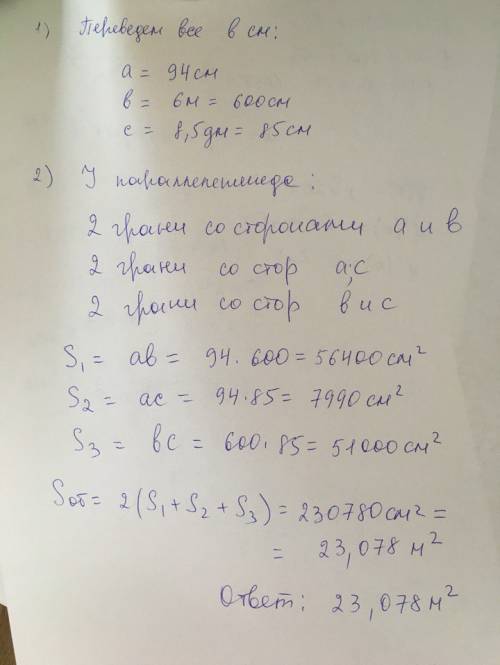 1) Переведем все в см:
a = 94см
в = 6м = 600см
c = 8,5дм = 85см
2) У параллепепипеда:
2 грани со сторонами а и в
2 грани со стор а;с
2 грани со стор в и с
S₁ = ав = 94·600 = 56400 см²
S₂ = ас = 94·85 = 7990 см²
S₃ = вс = 600·85 = 51000 см²
Sоб = 2(S₁ + S₂ + S₃) = 230780 см² =
= 23,078 м²
Ответ: 23,078 м²